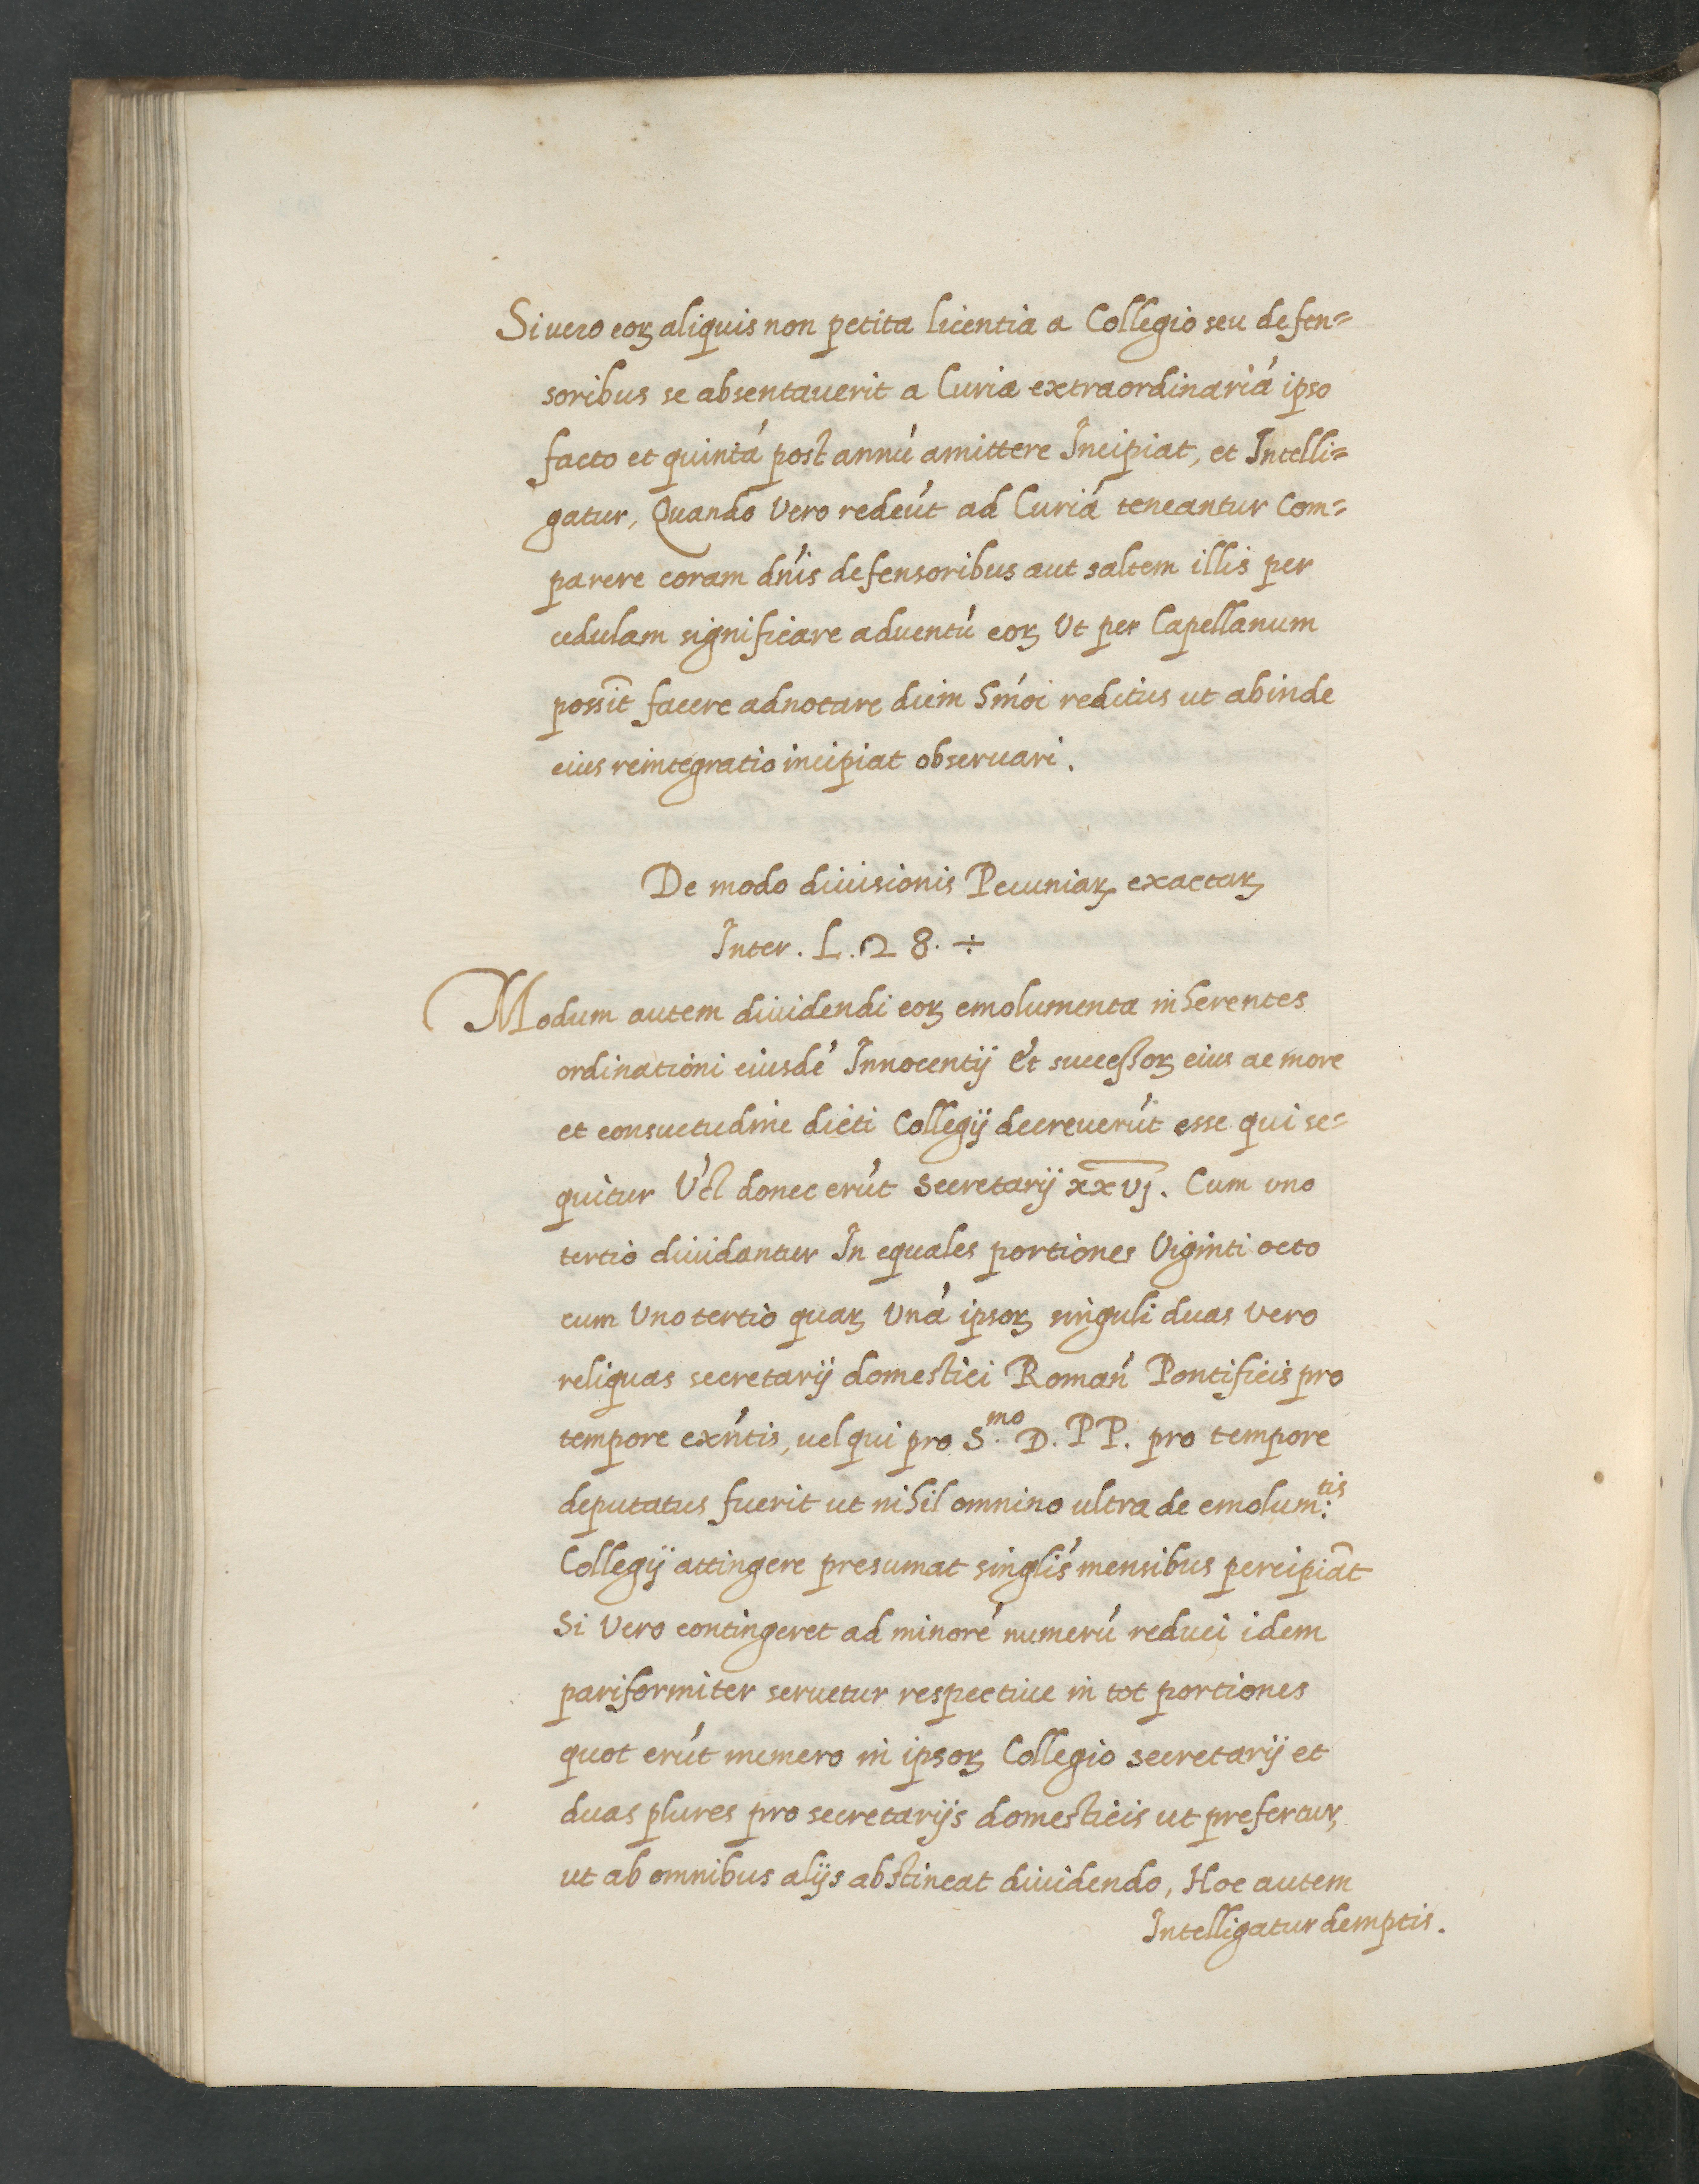 Si uero eoꝝ aliquis non petita licentia a Collegio seu defen=
soribus se absentauerit a Curia extraordinariá ipso
facto et quintá post annú amittere Incipiat, et Intelli=
gatur, Quando Vero redeút ad Curiá teneantur Com=
parere coram dńis defensoribus aut saltem illis per
cedulam significare aduentú eoꝝ Ut per Capellanum
possit̄ facere adnotare diem hm̃oi reditus ut abinde
eius reintegratio incipiat obseruari.
De modo diuisionis Pecuniaꝝ exactaꝝ
Inter. L. 28. ÷
Modum autem diuidendi eoꝝ emolumenta inherentes
ordinationi eiusdé Innocentij Et successoꝝ eius ac more
et consuetudine dicti Collegij decreuerút esse qui se=
quitur Vꝫ donec erút Secretarij xxvj. Cum uno
tertio diuidantur In equales portiones Viginti octo
cum Uno tertio quaꝝ Uná ipsoꝝ singuli duas vero
reliquas secretarij domestici Romań Pontificis pro
tempore exńtis, uel qui pro S.mo D. PP. pro tempore
deputatus fuerit ut nihil omnino ultra de emolum:tis
Collegij attingere presumat singlis´ mensibus percipiāt
Si Vero contingeret ad minoré numerú reduci idem
pariformiter seruetur respectiue in tot portiones
quot erút numero in ipsoꝝ Collegio Secretarij et
duas plures pro secretarijs domesticis ut prefertur,
ut ab omnibus alijs abstineat diuidendo, Hoc autem
Intelligatur demptis.